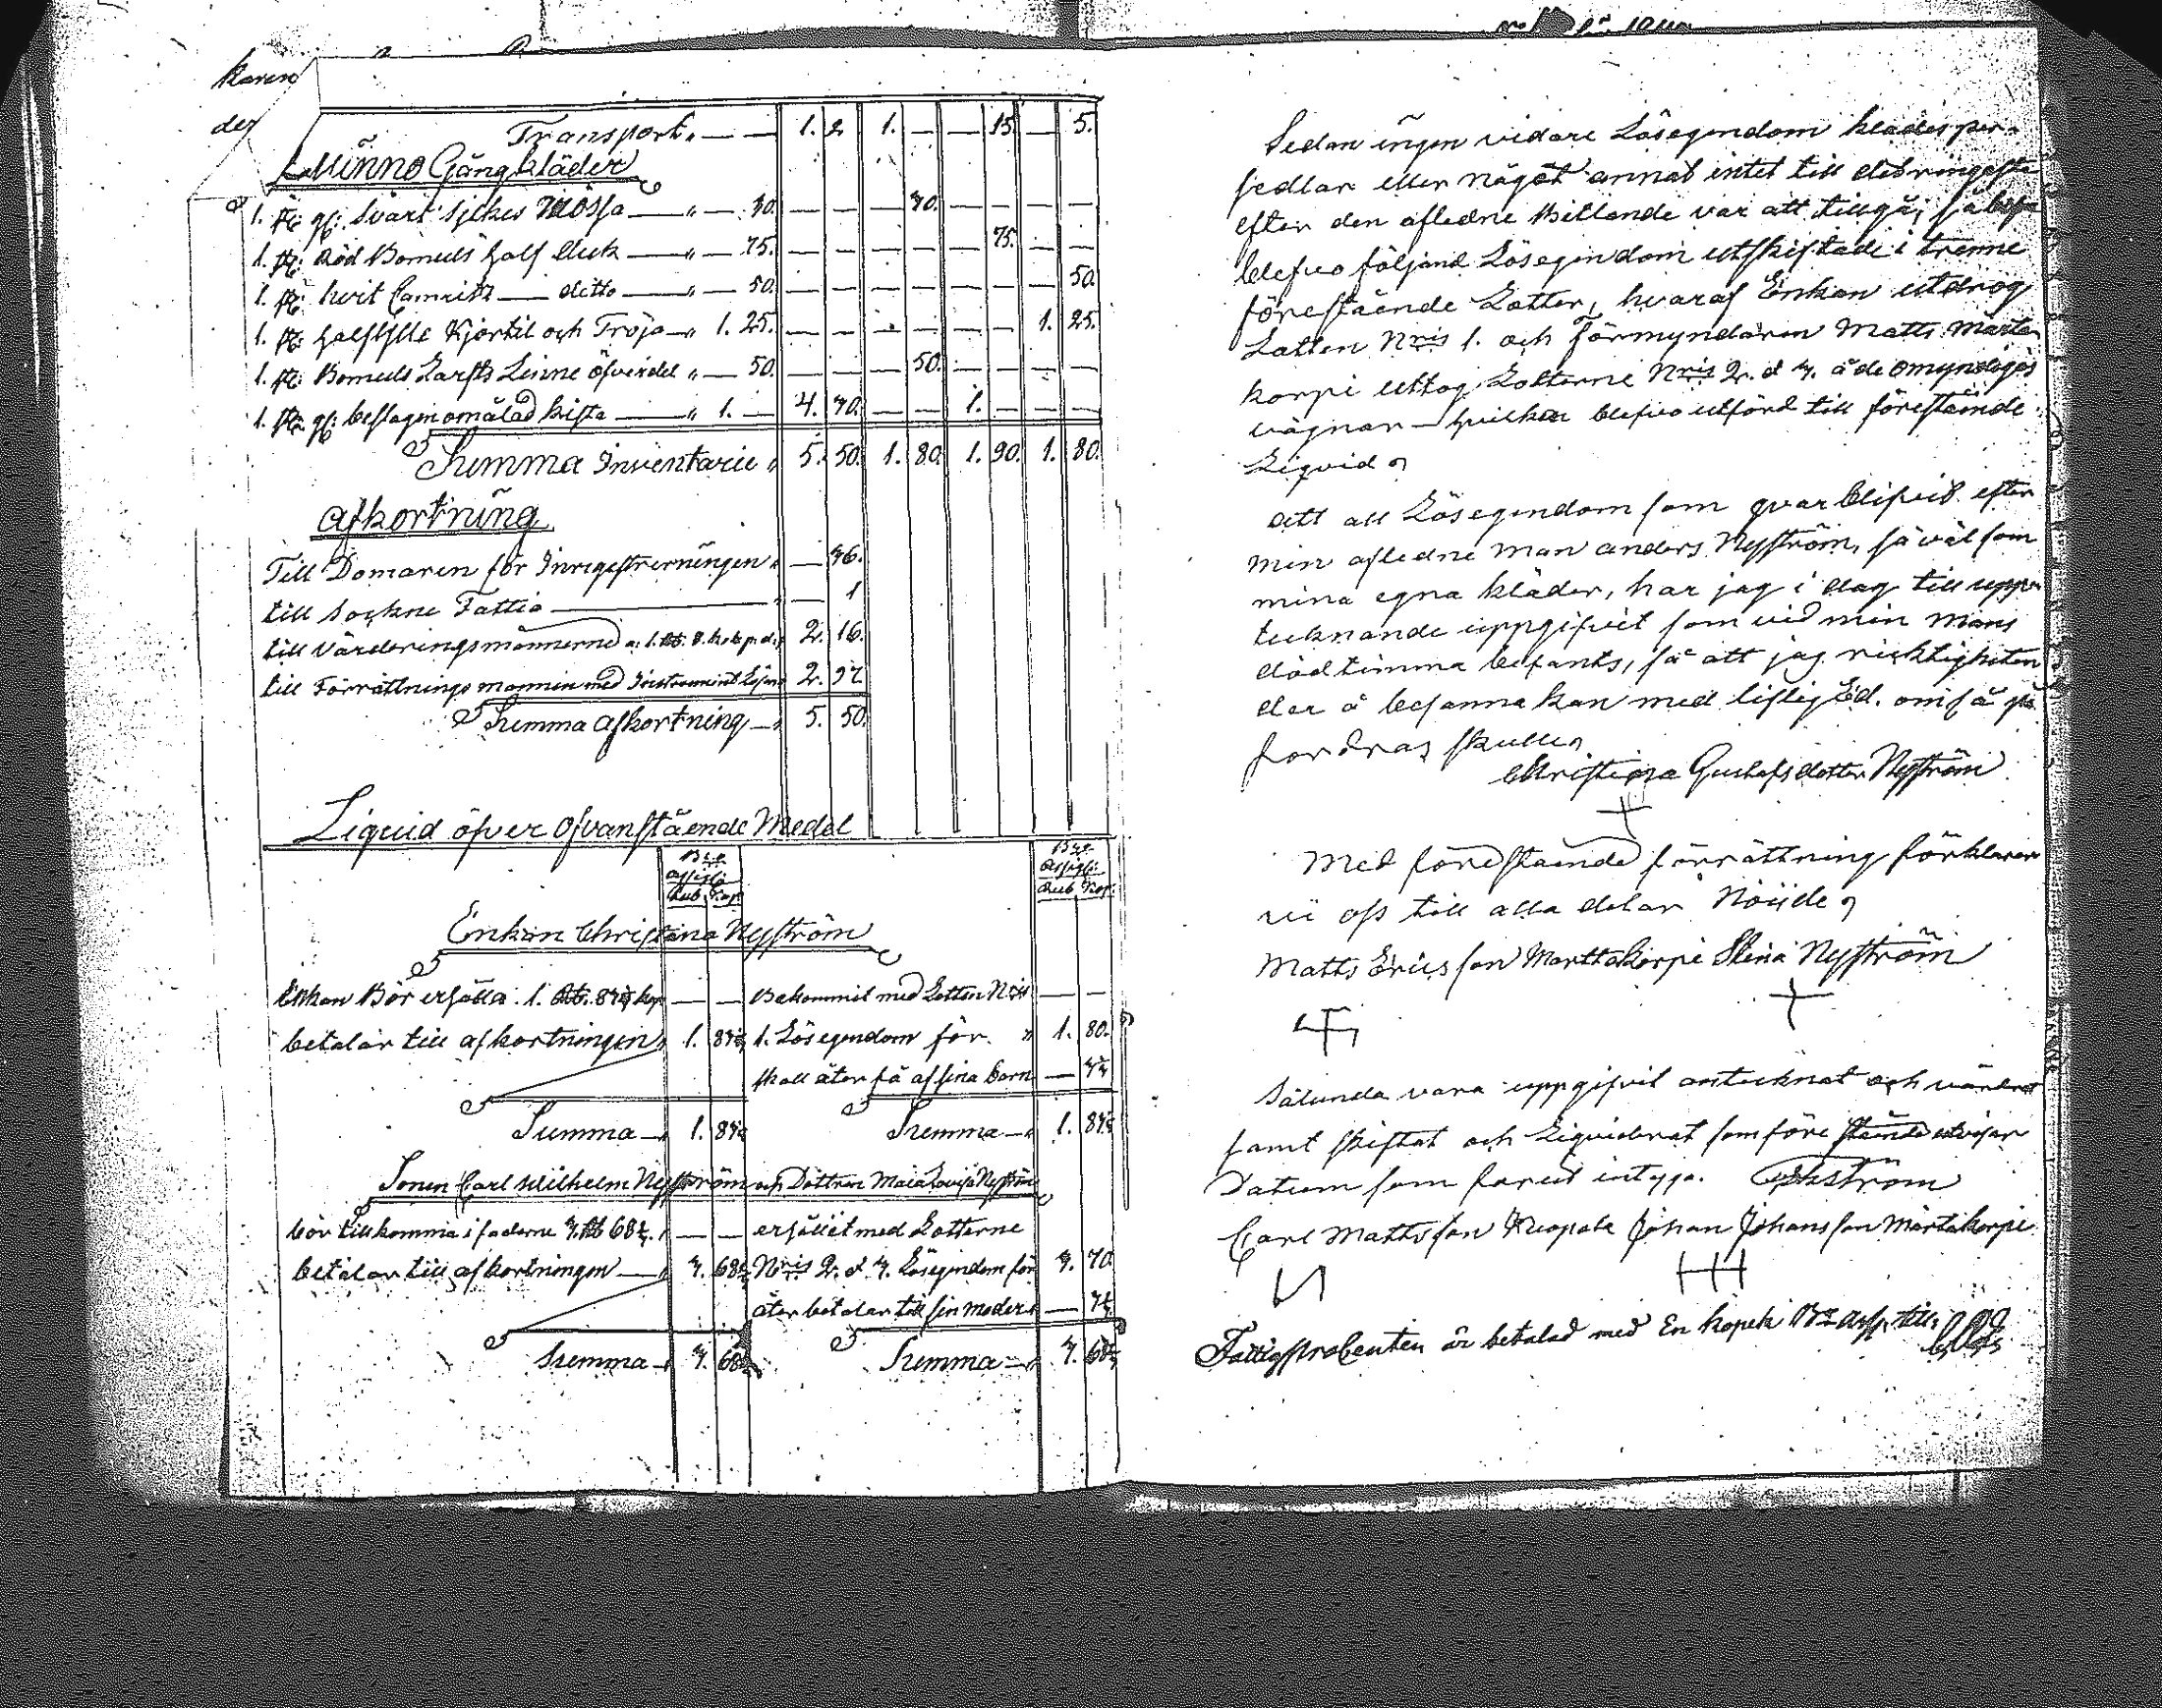 karen
der
Transport " — — 1. 2 1. — — 15 — 5.
Qvinno Gångkläder
1. st: gl: Svart Sjlkes Mössa — " — 30. — — — 30. — — — —
1. st: Röd Bomuls half duk — " — 75. — — — — — 75. — —
1. st: hvit Camrik — ditto — " — 50. — — — — — — — 50.
1. st: halfylle Kjortil och Tröja — " 1. 25. — — — — — — 1. 25.
1. st: Bomuls Larfts Linne öfverdel " — 50. — — — 50. — — — —
1. st: gl: beslagen omålad kista — " 1. — 4. 70. — — 1. — — —
Summa Inventarie " 5. 50. 1. 80. 1. 90. 1. 80.
Afkortning
Till Domaren för Inregistrerningen " — 36.
till Sockne Fattia — " — 1
till Värderingsmännerne a: 1. Rb. 8. kop. 2. 16.
till Förrättnings mannen med Instrument 2. 97
Summa Afkortning — " 5. 50.
Liquid öfver Ofvanstående Medel
Bco Assig: Rub. Kop. Bco Assig: Rub. Kop.
Enkan Christina Nyström
Enkan Bör erhålla 1. Rb. 87½ kop — — Bekommit med Lotten N:ris — —
betalar till afkortningen " 1. 87½ 1. Lösegendom för. " 1. 80.
skall åter få af sina barn — 7½
Summa — " 1. 87½ Summa — " 1. 87½
Sonen Carl Wilhelm Nyström och Dottren Maia Lovisa Nyström
bör tillkomma i faderne 3. Rb 62½. — — erhållit med Lotterne
betalar till afkortningen — " 3. 62½ N:ris 2. et 3. Lösegendom för 3. 70.
åter betalar till sin moder — 7½
Summa — " 3. 62½ Summa — " 3. 62½
Sedan ingen vidare Lösegendom klädesper-
sedlar eller något annat intet till det ringaste
efter den afledne Millande var att tillgå; så
blefvo följand Lösegendom utskiftade i trenne
förestående Lotter, hvaraf Enkan utdrog
Lotten Nris 1. och Förmyndaren Matts Mårta
korpi uttog Lotterne Nris 2. et 3. å de omyndiges
vägnar — hvilka blefvo utförd till förestående
Liquid
Att all Lösegendom som qvarblifvid efter
min afledne man Anders Nyström, så väl som
mina egna kläder, har jag i dag till upp-
tecknande uppgifvit som vid min mans
död timma befants, så att jag riktigheten
der å besanna kan med liflig Ed. om så på
fordras skulle
Christina Gustafsdotter Nyström
Med förestående förrättning förklarar
vi oss till alla delar Nöijde
Matts Ericsson Marttakorpi Stina Nyström
Sålunda vara uppgifvit antecknat och värderat
samt skiftat och Liquiderat som före stående utvisar
Datum som förut intyga. Ekström
Carl Mattsson Kuopala Johan Johansson Mårtakorpi
Fattigprocenten är betalad med En kopek Bco Assg.